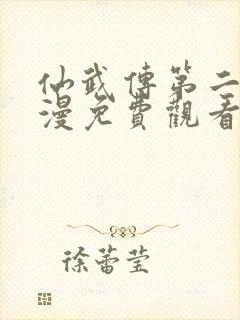 仙武傳第二
漫免費觀看
徐蕾莹